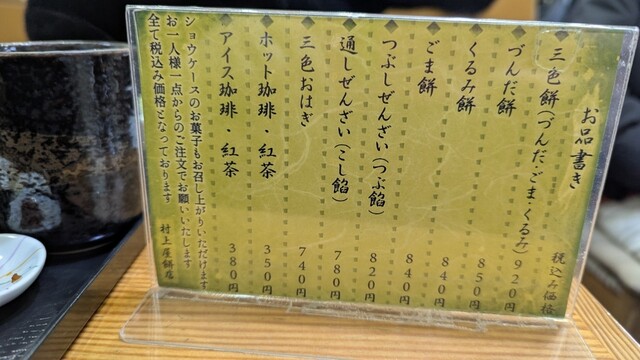 お品書き 税込み価格
三色餅(づんだ・ごま・くるみ) 920円
づんだ餅 850円
くるみ餅 840円
ごま餅 840円
つぶしぜんざい(つぶ餡) 820円
通しぜんざい(こし餡) 780円
三色おはぎ 740円
ホット珈琲・紅茶 350円
アイス珈琲・紅茶 380円
ショウケースのお菓子もお召し上がりいただけます
お一人様一点からのご注文でお願いいたします
全て税込み価格となっております 村上屋餅店